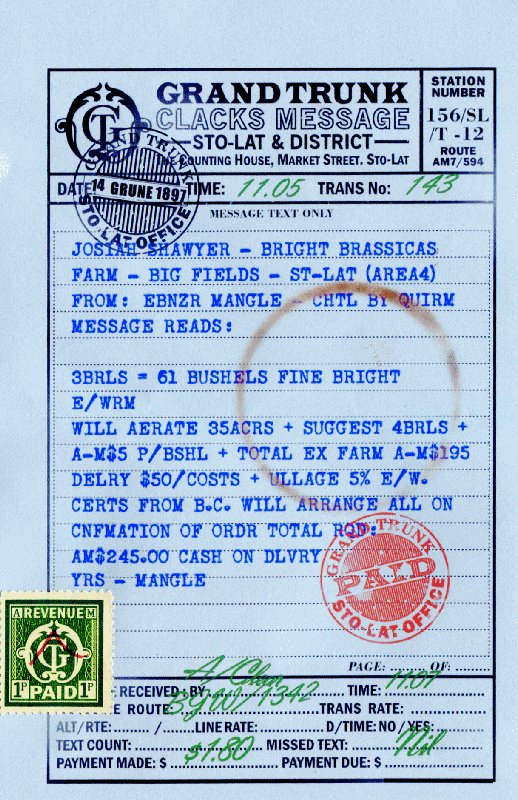 GRAND TRUNK
CLACKS MESSAGE
STO-LAT & DISTRICT
COUNTING HOUSE, MARKET STREET. STO-LAT
STATION
NUMBER
156/SL
/T -12
ROUTE
AM7/594
GT
GRAND TRUNK
14 GRUNE 189
STO-LAT OFFICE
DATE: TIME: 11.05 TRANS No: 143
MESSAGE TEXT ONLY
JOSIAH SHAWYER - BRIGHT BRASSICAS
FARM - BIG FIELDS - ST-LAT (AREA4)
FROM: EBNZR MANGLE - CHTL BY QUIRM
MESSAGE READS:
3BRLS = 61 BUSHELS FINE BRIGHT
E/WRM
WILL AERATE 35ACRS + SUGGEST 4BRLS +
A-M$5 P/BSHL + TOTAL EX FARM A-M$195
DELRY $50/COSTS + ULLAGE 5% E/W.
CERTS FROM B.C. WILL ARRANGE ALL ON
CNFMATION OF ORDR TOTAL RQD:
AM$245.00 CASH ON DLVRY
YRS - MANGLE
GRAND TRUNK
PAID
STO-LAT OFFICE
A REVENUE M
GT
1P PAID 1P
PAGE: OF:
RECEIVED BY A/Clan TIME: 11.07
ROUTE: BGW/1342 TRANS RATE:
ALT/RTE: / LINE RATE: D/TIME: NO / YES:
TEXT COUNT: $1.80 MISSED TEXT: Nil
PAYMENT MADE: $ PAYMENT DUE: $